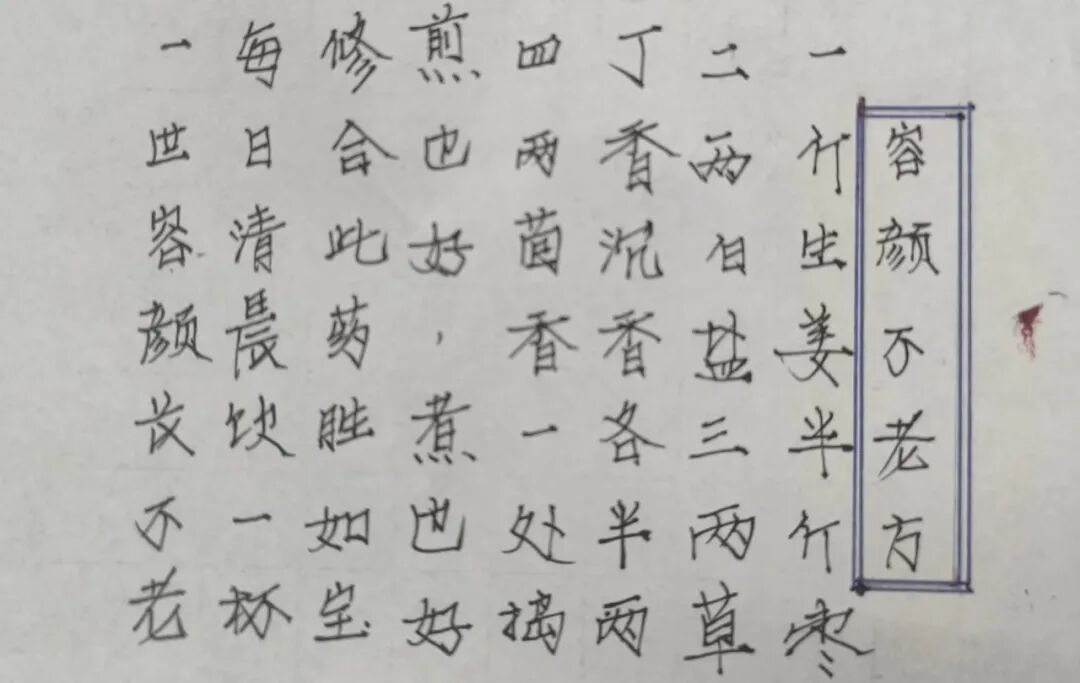 容颜不老方
一斤生姜半斤枣
二两白盐三两草
丁香沉香各半两
四两茴香一处捣
煎也好，煮也好
修合此药胜如宝
每日清晨饮一杯
一世容颜长不老